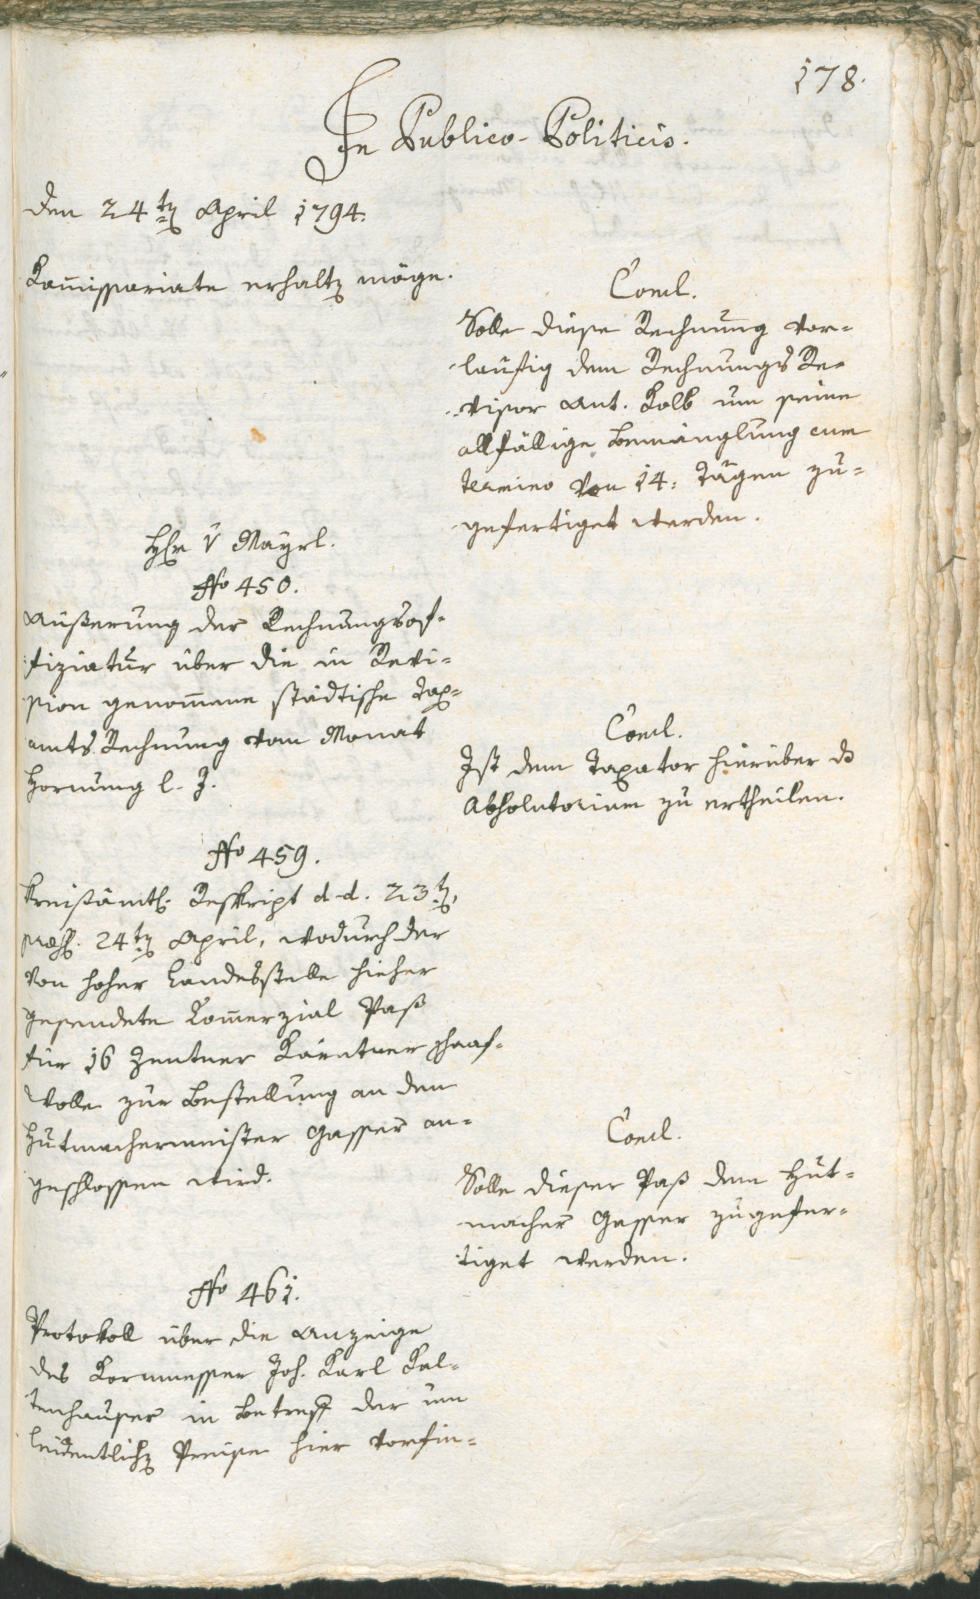 178.
In Publico-Politicis.
den 24ten April 1794.
Kom̅issariate erhalten möge.
Concl.
Solle diese Rechnung vor=
läufig dem Rechnungs Re=
visor Ant. Kolb um seine
allfällige Bemänglung cum
termino von 14: Tägen zu=
gefertiget werden.
H̅r v Mayrl.
No 450.
Äußerung der Rechnungsof=
fiziatur über die in Revi=
sion genom̅ene städtische Tax=
amts Rechnung vom Monat
Hornung l. J.
Concl.
Ist dem Taxator hierüber ds
Absolutorium zu ertheilen.
No 459.
Kreisämtl. Reskript d. d. 23ten,
præs. 24ten April, wodurch der
von hoher Landesstelle hieher
gesendete Kom̅erzial Paß
für 16 Zentner Kärntner Schaaf=
wolle zur Bestellung an den
Hutmachermeister Gasser an=
geschlossen wird.
Concl.
Solle dieser Paß dem Hut=
macher Gasser zugefer=
tiget werden.
No 461.
Protokoll über die Anzeige
des Kornmesser Joh. Karl Kal=
tenhauser in Betreff der um
leidentlichen Preise hier vorfin=